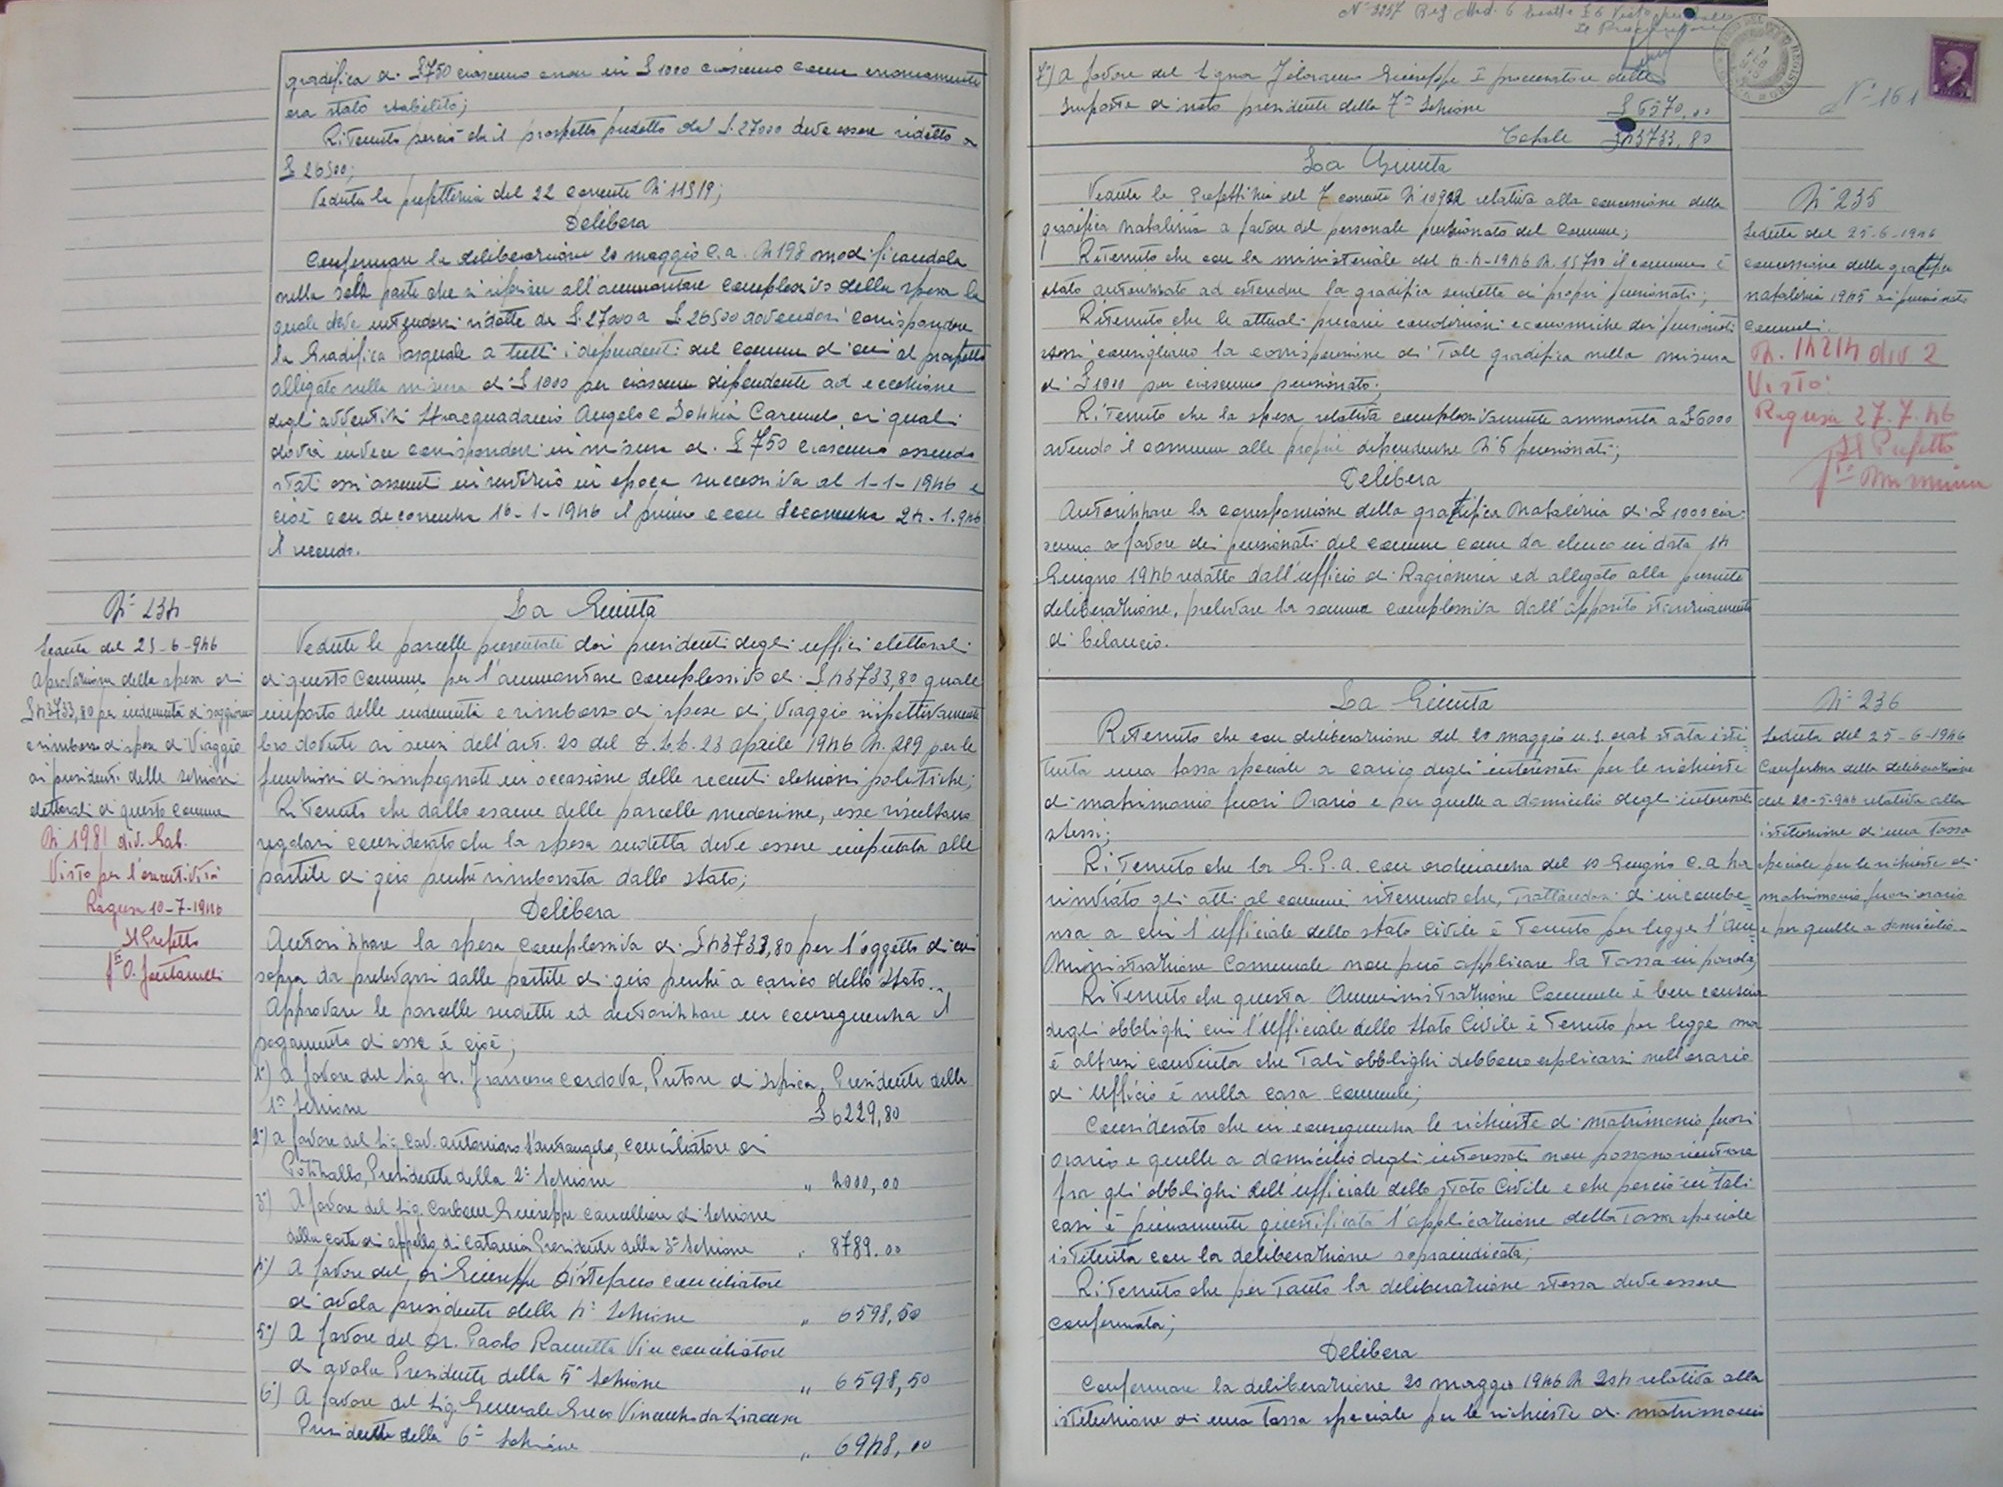 gratifica di £ 750 ciascuno anzi in £ 1000 ciascuno come erroneamente
era stato stabilito;
Ritenuto perciò che il prospetto predetto da £. 27000 deve essere ridotto a
£ 26500;
Veduta la prefettizia del 22 corrente N° 11919;
Delibera
Confermare la deliberazione 20 maggio c.a. N 198 modificandola
nella sola parte che si riferisce all'ammontare complessivo della spesa la
quale deve intendersi ridotta da £. 27000 a £. 26500 dovendosi corrispondere
la Gratifica Pasquale a tutti i dipendenti del comune di cui al prospetto
allegato nella misura di £ 1000 per ciascun dipendente ad eccezione
degli avventizi Stracquadaneo Angelo e Carmelo ai quali
dovrà invece corrispondersi in misura di £ 750 ciascuno essendo
stati essi assunti in servizio in epoca successiva al 1-1-1946 e
cioè con decorrenza 16-1-1946 il primo e con decorrenza 24-1-946
il secondo.
N° 234
Seduta del 25-6-946
Approvazione della spesa di
£ 43733,80 per indennità di soggiorno
e rimborso di spese di Viaggio
ai presidenti delle sezioni
elettorali di questo comune
N 1981 div. Gab.
Visto per l'esecutività
Ragusa 10-7-1946
Il Prefetto
La Giunta
Vedute le parcelle presentate dai presidenti degli uffici elettorali
di questo Comune per l'ammontare complessivo di £ 43733,80 quale
importo delle indennità e rimborso di spese di viaggio rispettivamente
loro dovute ai sensi dell'art. 20 del D.L.L. 23 aprile 1946 N. 219 per le
funzioni disimpegnate in occasione delle recenti elezioni politiche;
Ritenuto che dallo esame delle parcelle medesime, esse risultano
regolari considerato che la spesa suddetta deve essere imputata alle
partite di giro perché rimborsata dallo stato;
Delibera
Autorizzare la spesa complessiva di £ 43733,80 per l'oggetto di cui
sopra da prelevarsi dalle partite di giro perché a carico dello Stato.
Approvare le parcelle sudette ed autorizzare in conseguenza il
pagamento di esse e cioè;
1°) A favore del Sig. Dr. Francesco Cordova, Pretore di Ispica, Presidente della
1ª Sezione £ 6229,80
2°) A favore del Sig. Cav. Antonino Santangelo, conciliatore di
Pozzallo, Presidente della 2ª Sezione " 2000,00
3°) A favore del Sig. Carbone Giuseppe cancelliere di Sezione
della corte di appello di Catania Presidente della 3ª Sezione " 8789.00
4°) A favore del Dr Giuseppe Distefano conciliatore
di Avola presidente della 4ª Sezione " 6598,50
5°) A favore del Dr. Paolo Vice conciliatore
di Avola Presidente della 5ª Sezione " 6598,50
6°) A favore del Sig. Generale Greco Vincenzo da Siracusa
Presidente della 6ª Sezione " 6948,00
N° 3257 Reg. Mod. 6
Il Procuratore
7°) A favore del Signor Giuseppe I° procuratore delle
Imposte di Noto presidente della 7ª Sezione £ 6570,00
Totale 43733,80
N° 161
La Giunta
Veduta la Prefettizia del 7 corrente N° relativa alla concessione della
gratifica natalizia a favore del personale pensionato del Comune;
Ritenuto che con la ministeriale del 4-4-1946 N. 15700 il comune è
stato autorizzato ad estendere la gratifica sudetta ai propri pensionati;
Ritenuto che le attuali precarie condizioni economiche dei pensionati
stessi consigliano la corrisponsione di tale gratifica nella misura
di £ 1000 per ciascuno pensionato;
Ritenuto che la spesa relativa complessivamente ammonta a £ 6000
avendo il comune alle proprie dipendenze N° 6 pensionati;
Delibera
Autorizzare la corresponsione della gratifica Natalizia di £ 1000 cia=
scuno a favore dei pensionati del comune come da elenco in data 14
Giugno 1946 redatto dall'ufficio di Ragioneria ed allegato alla presente
deliberazione, prelevare la somma complessiva dall'apposito stanziamento
di bilancio.
N° 235
Seduta del 25-6-1946
concessione della gratifica
natalizia 1945 ai pensionati
comunali.
N. 14214 div 2
Visto:
Ragusa 27.7.46
Il Prefetto
La Giunta
Ritenuto che con deliberazione del 20 maggio u.s. era stata isti=
tuita una tassa speciale a carico degli interessati per le richieste
di matrimonio fuori Orario e per quelle a domicilio degli interessati
stessi;
Ritenuto che la G.P.A. con ordinanza del 10 Giugno c.a ha
rinviato gli atti al comune ritenendo che, trattandosi di incombe=
nza a cui l'ufficiale dello stato Civile è tenuto per legge l'Am=
ministrazione Comunale non può applicare la tassa in parola;
Ritenuto che questa Amministrazione Comunale è ben conscia
degli obblighi cui l'ufficiale dello Stato Civile è tenuto per legge ma
è altresì convinta che tali obblighi debbano esplicarsi nell'orario
di Ufficio e nella casa Comunale;
Considerato che in conseguenza le richieste di matrimonio fuori
orario e quelle a domicilio degli interessati non possono rientrare
fra gli obblighi dell'ufficiale dello stato Civile e che perciò in tali
casi è pienamente giustificata l'applicazione della tassa speciale
istituita con la deliberazione sopraindicata;
Ritenuto che per tanto la deliberazione stessa deve essere
confermata;
Delibera
Confermare la deliberazione 20 maggio 1946 N 204 relativa alla
istituzione di una tassa speciale per le richieste di matrimonio
N° 236
Seduta del 25-6-1946
Conferma della deliberazione
del 20-5-946 relativa alla
istituzione di una tassa
speciale per le richieste di
matrimonio fuori orario
e per quelle a domicilio